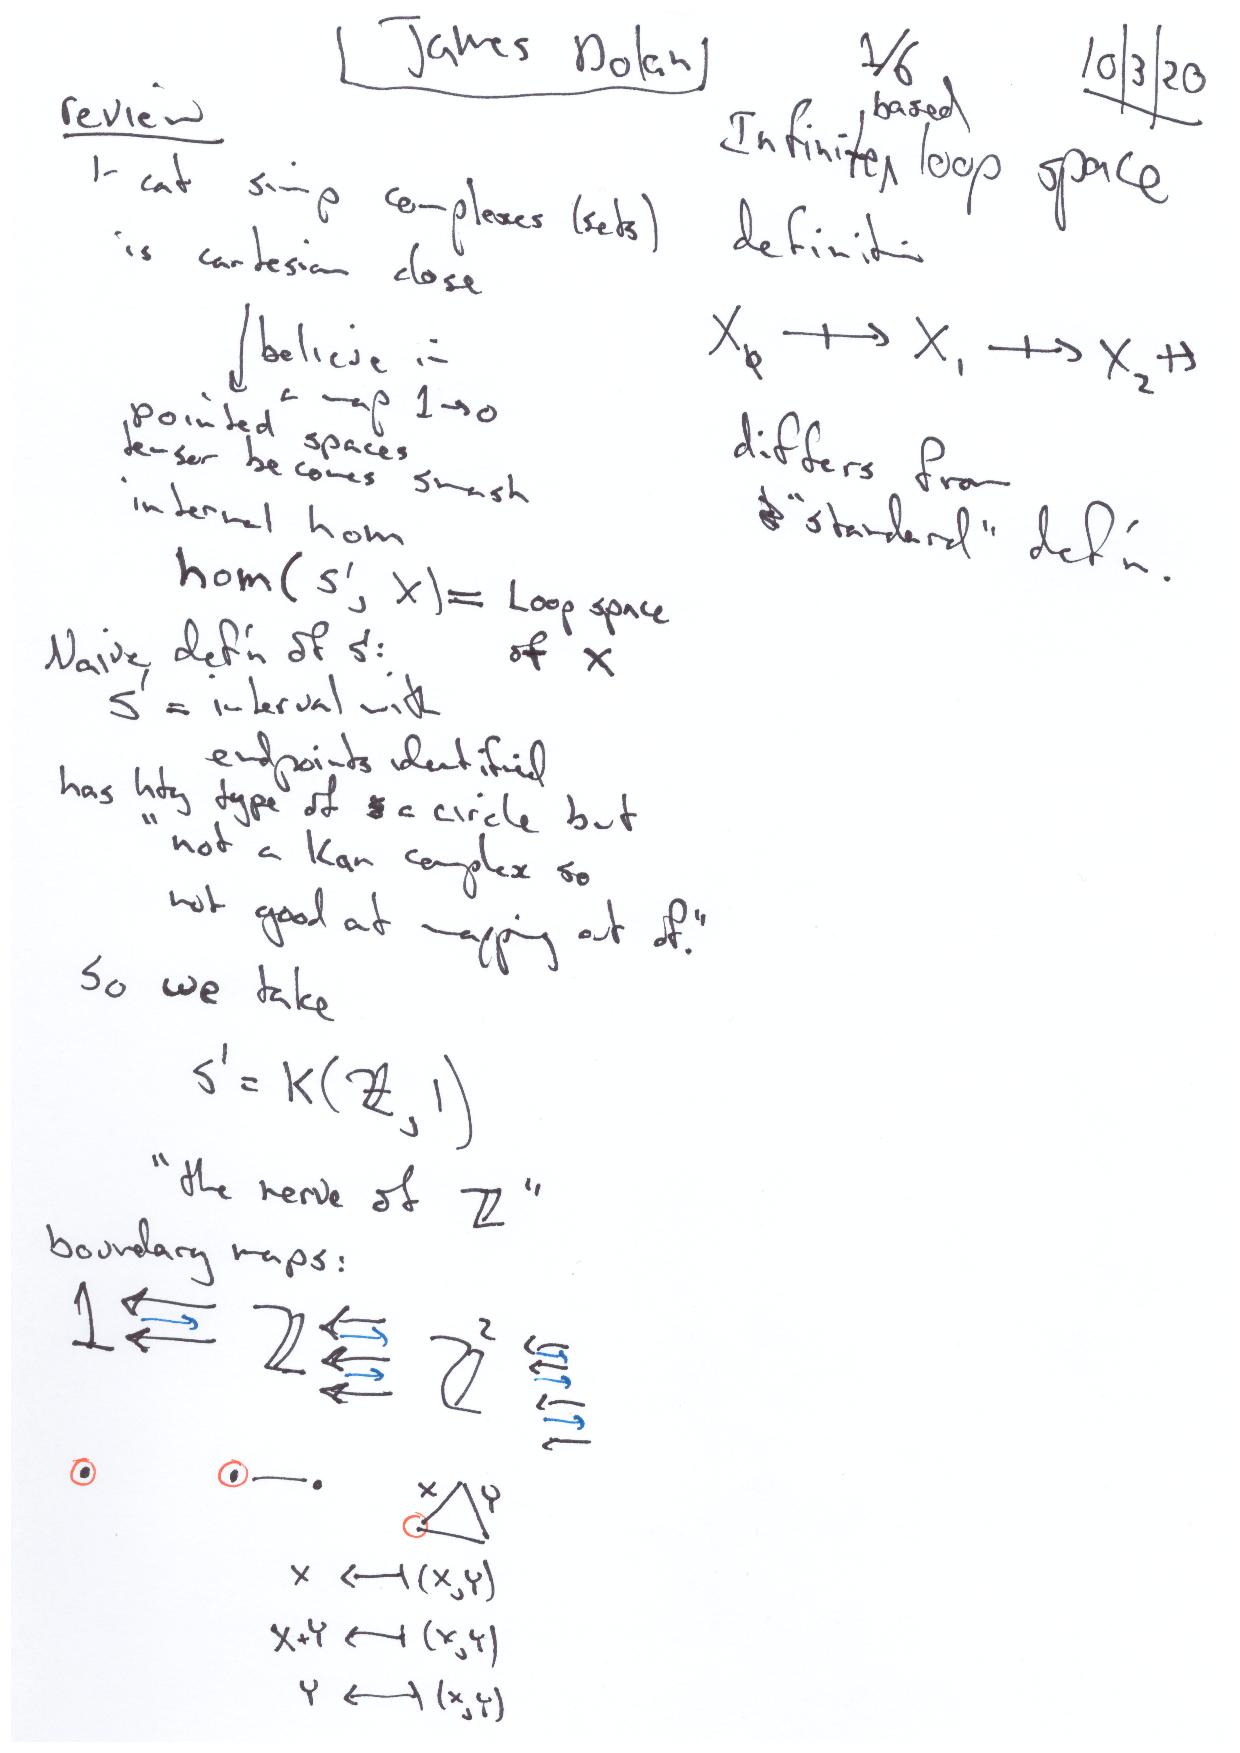 James Dolan
1/6
10/3/20
review
1- cat simp complexes (sets)
is cartesian close
believe in
a map 1→0
pointed spaces
tensor becomes smash
internal hom
hom(S¹, X) = Loop space
of X
Naive defn of S¹:
S¹ = interval with
endpoints identified
has hty type of a circle but
"not a Kan complex so
not good at mapping out of."
So we take
S¹ = K(ℤ, 1)
"the nerve of ℤ"
boundary maps:
1 ℤ ℤ²
x y
x ↤ (x,y)
x+y ↤ (x,y)
y ↤ (x,y)
based
Infinite loop space
X₀ ⇸ X₁ ⇸ X₂ ⇸
differs from
"standard" def'n.